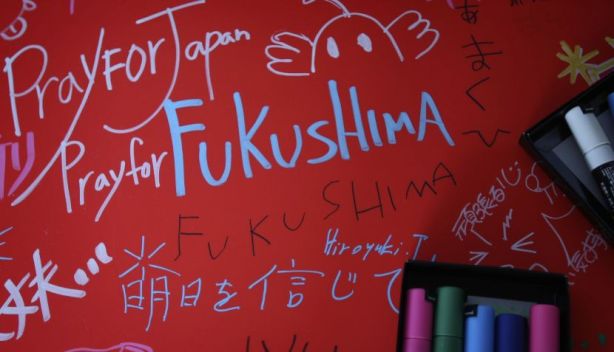 Pray FOR Japan
Pray for FUKUSHIMA
FUKUSHIMA
Hiroyuki.T
明日を信じて
頑張ろう